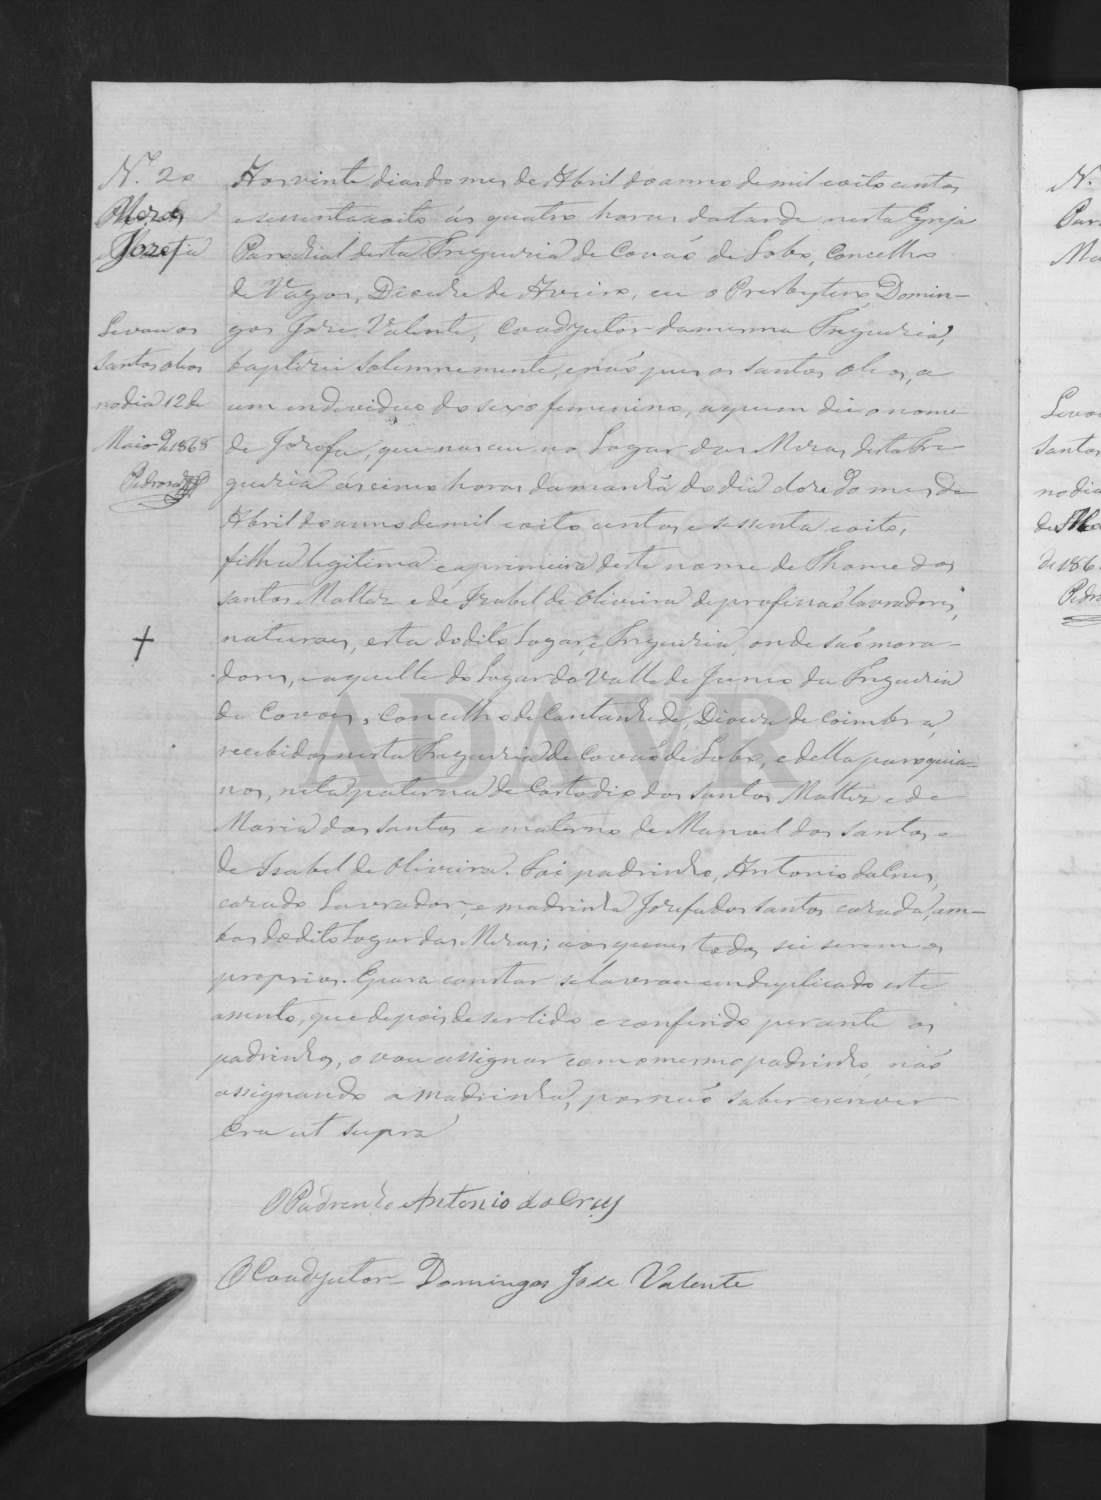 N.º 20
Meras
Jozefa
Levou os
santos oleos
no dia 12 de
Maio de 1868
Pedrosa
Aos vinte dias do mes de Abril do anno de mil e oito centos
e sessenta e oito ás quatro horas da tarde nesta Egreja
Parochial desta Freguezia de Covaõ do Lobo, Concelho
de Vagos, Diocese de Aveiro, eu o Presbytero Domin-
gos Jose Valente, Coadjutor da mesma Freguezia,
baptizei solemnemente, e naõ pus os santos oleos, a
um individuo do sexo femenino, a quem dei o nome
de Jozefa, que nasceu no Lugar das Meras desta Fre-
guezia ás cinco horas da manhã do dia doze do mes de
Abril do anno de mil e oito centos e sessenta e oito,
filha legitima e a primeira deste nome de Thome dos
santos Maltez e de Izabel de Oliveira de profissaõ lavradores,
naturaes, esta do dito Lugar, e Freguezia, onde saõ mora-
dores, e aquelle do Lugar do Valle de Junco da Freguezia
de Covoes, Concelho de Cantanhede, Diocese de Coimbra,
recebidos nesta Freguezia de Covaõ do Lobo, e della paroquia-
nos, neta paterna de Custodio dos Santos Maltez e de
Maria dos santos e materna de Manoel dos santos e
de Isabel de Oliveira. Foi padrinho, Antonio da Cruz,
cazado Lavrador, e madrinha Jozefa dos santos cazada, am-
bos do dito Lugar das Meras; aos quaes todos sei serem os
proprios. E para constar se lavrou em duplicado este
assento, que depois de ser lido e conferido perante os
padrinhos, o vou assignar com o mesmo padrinho, naõ
assignando a Madrinha, por naõ saber escrever
Era ut supra
O Padrinho Antonio da Cruz
O Coadjutor Domingos Jose Valente
ADAVR
N.
Levou
santos
no dia
de 186
Pedro